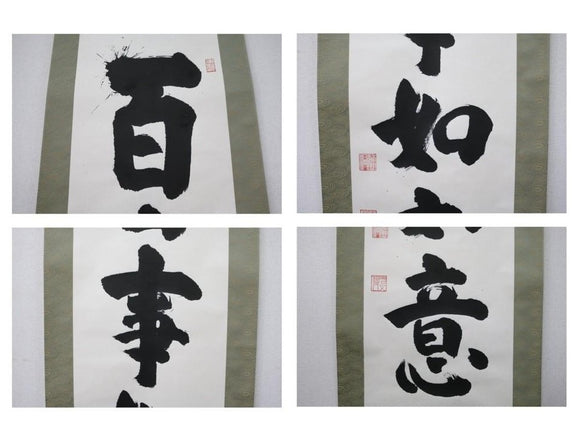 百
事
如
意